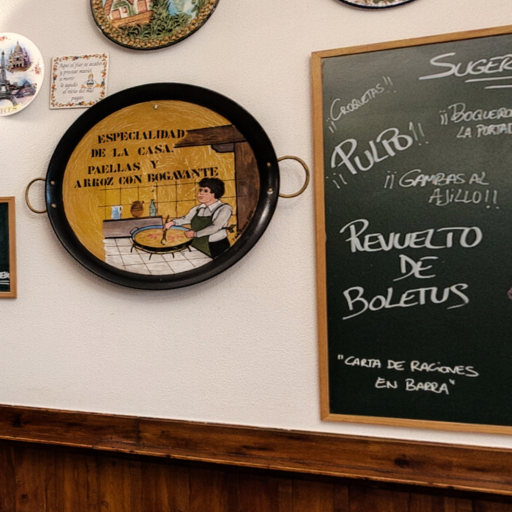 ESPECIALIDAD
DE LA CASA.
PAELLAS Y
ARROZ CON BOGAVANTE
SUGER
¡¡CROQUETAS!!
¡¡PULPO!!
¡¡BOQUERO
LA PORTAD
¡¡GAMBAS AL
AJILLO!!
REVUELTO
DE
BOLETUS
"CARTA DE RACIONES
EN BARRA"